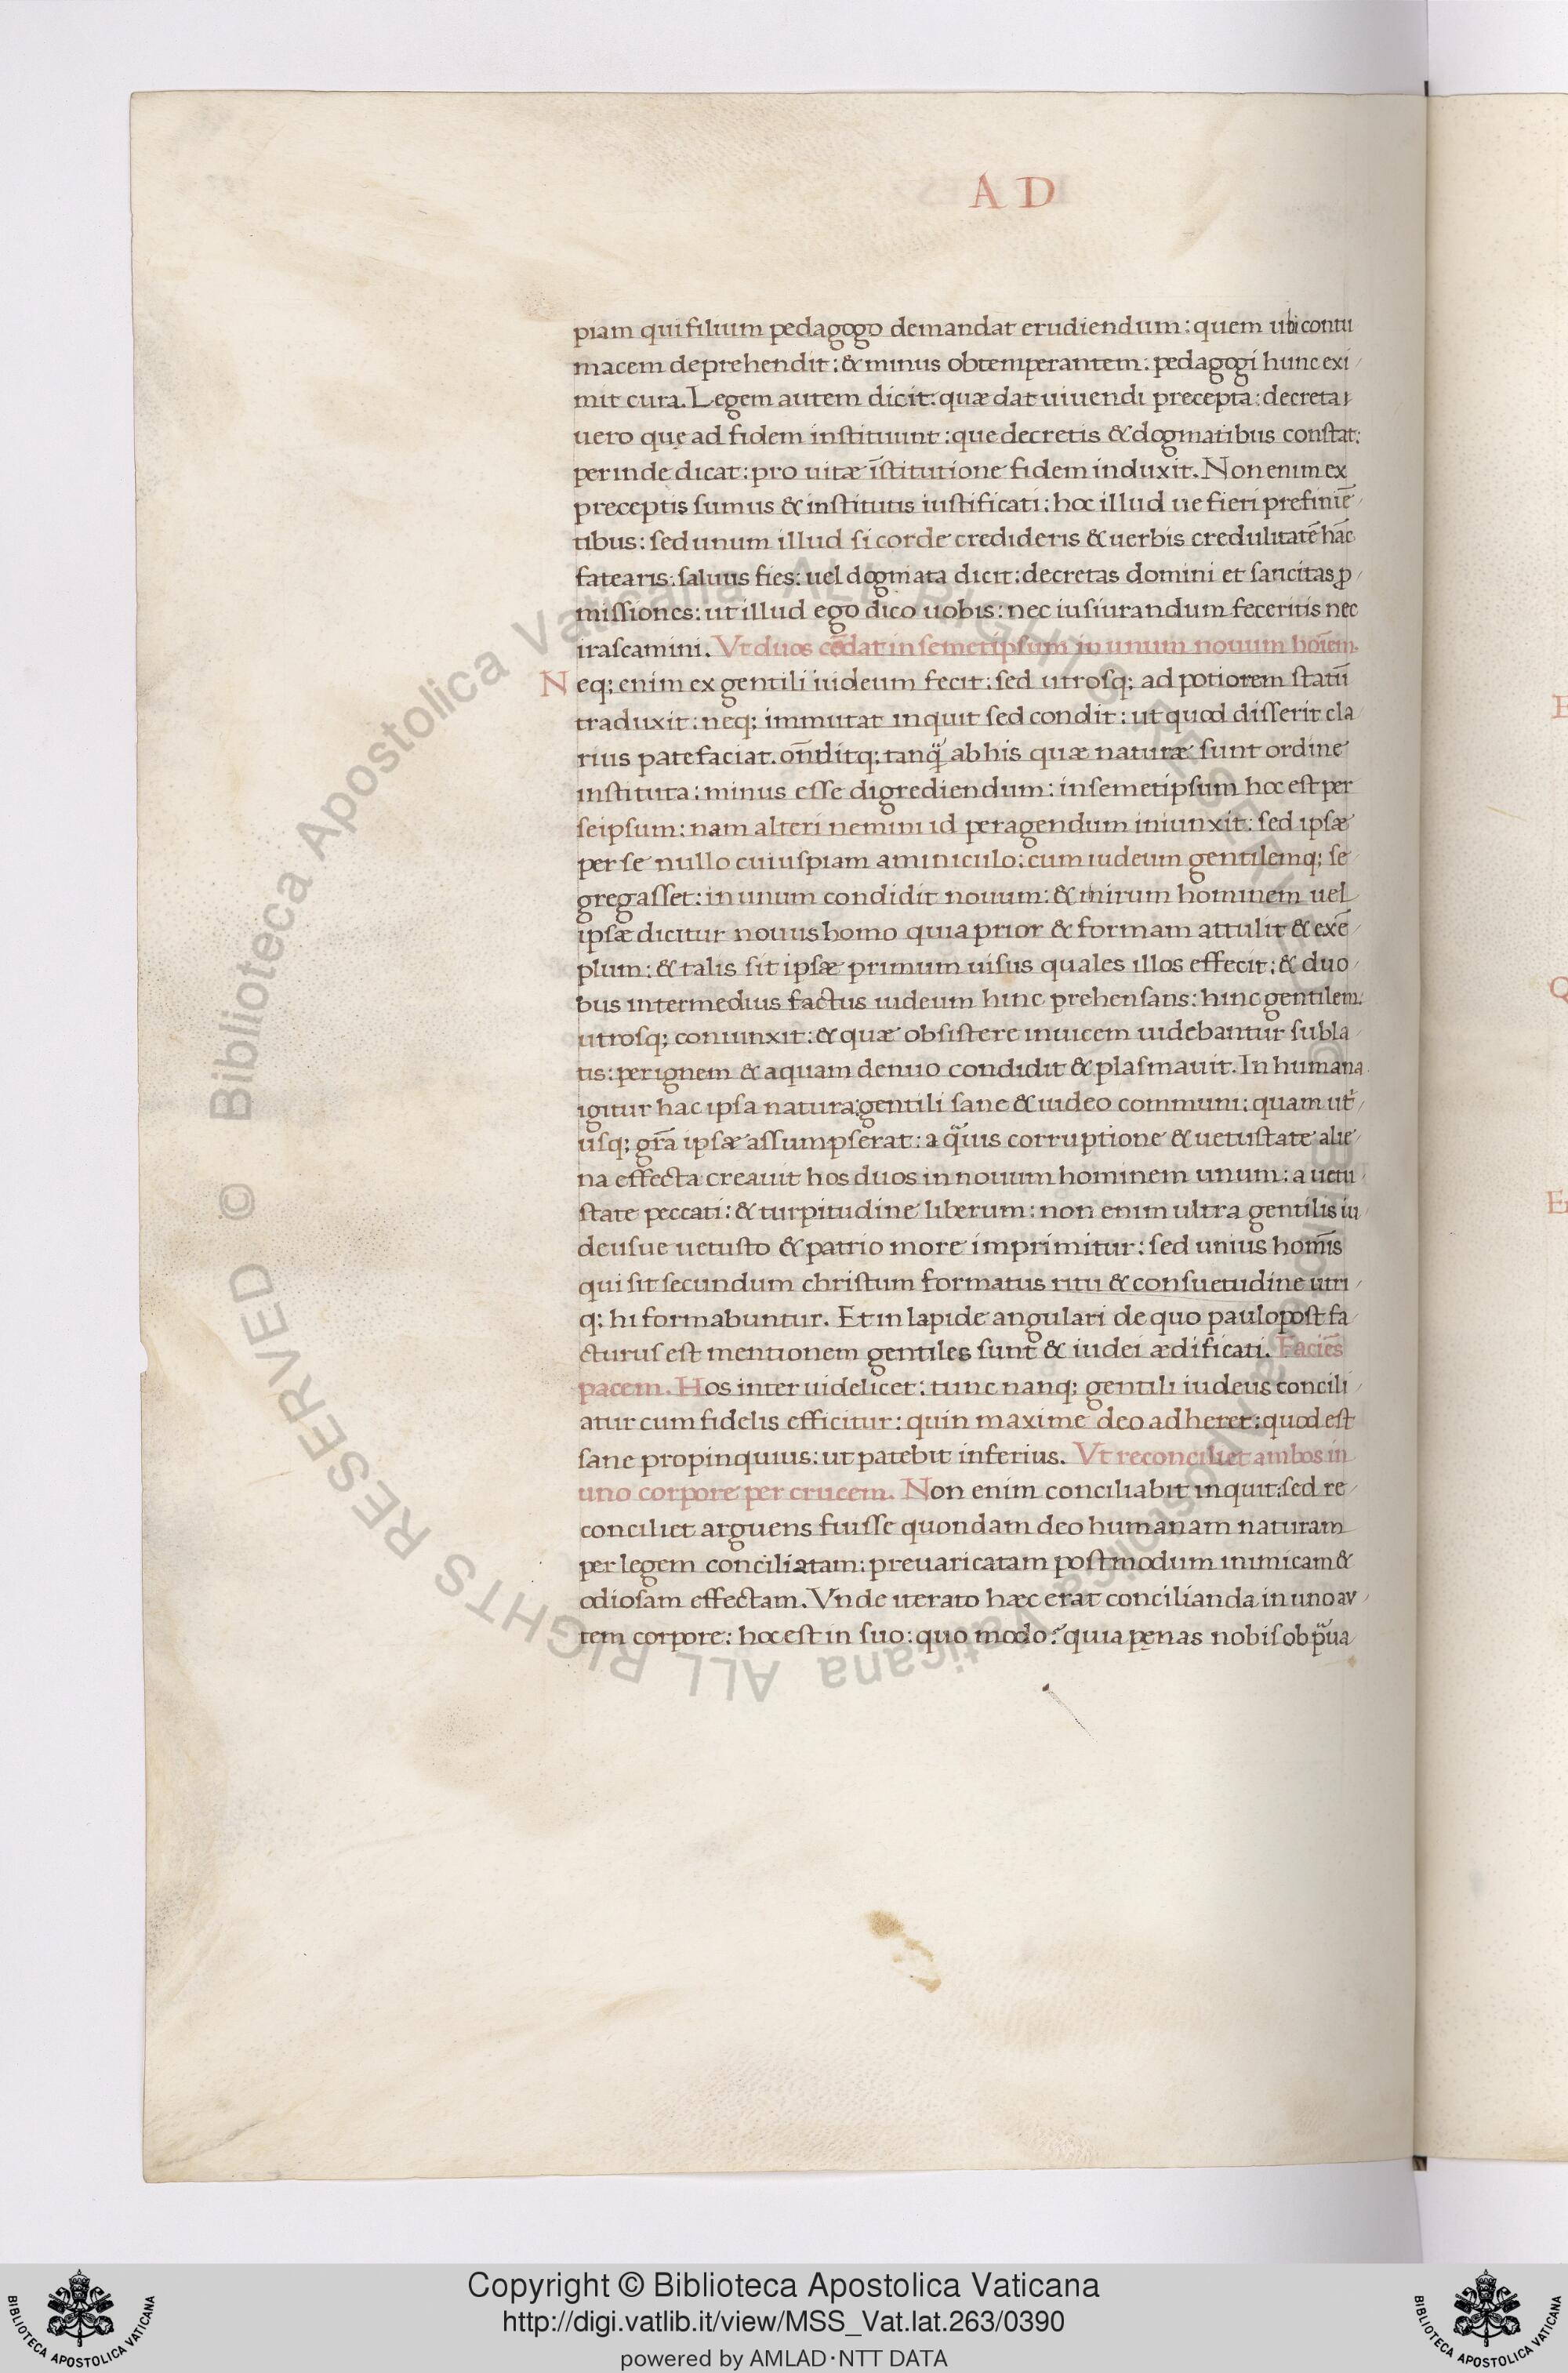 A D
piam qui filium pedagogo demandat erudiendum: quem ubi contu
macem deprehendit: & minus obtemperantem: pedagogi hunc exi
mit cura. Legem autem dicit: quæ dat uiuendi precepta: decreta
uero quę ad fidem instituunt: que decretis & dogmatibus constat:
perinde dicat: pro uitæ īstitutione fidem induxit. Non enim ex
preceptis sumus & institutis iustificati: hoc illud ue fieri prefiniē
tibus: sed unum illud si corde credideris & uerbis credulitatē hāc
fatearis: saluus fies: uel dogmata dicit: decretas domini et sancitas ꝓ
missiones: ut illud ego dico uobis: nec iusiurandum feceritis nec
irascamini. Vt duos cōdat in semetipsum in unum nouum hoīem.
Neq; enim ex gentili iudeum fecit: sed utrosq; ad potiorem statū
traduxit: neq; immutat inquit sed condit: ut quod disserit cla
rius patefaciat. on̄ditq; tanq̄ ab his quæ naturæ sunt ordine
instituta: minus esse digrediendum: in semetipsum hoc est per
seipsum: nam alteri nemini id peragendum iniunxit: sed ipsæ
per se nullo cuiuspiam aminiculo: cum iudeum gentilemq; se
gregasset: in unum condidit nouum: & mirum hominem uel
ipsæ dicitur nouus homo quia prior & formam attulit & exē
plum: & talis sit ipsæ primum uisus quales illos effecit: & duo
bus intermedius factus iudeum hinc prehensans: hinc gentilem:
utrosq; coniunxit: & quæ obsistere inuicem uidebantur subla
tis: per ignem & aquam denuo condidit & plasmauit. In humana
igitur hac ipsa natura: gentili sane & iudeo communi: quam ut
usq; grā ipsæ assumpserat: a q̄uis corruptione & uetustate alie
na effecta creauit hos duos in nouum hominem unum: a uetu
state peccati: & turpitudine liberum: non enim ultra gentilis iu
deusue uetusto & patrio more imprimitur: sed unius homīs
qui sit secundum christum formatus ritu & consuetudine utri
q; hi formabuntur. Et in lapide angulari de quo paulo post fa
cturus est mentionem gentiles sunt & iudei ædificati. Faciēs
pacem. Hos inter uidelicet: tunc nanq; gentili iudeus concili
atur cum fidelis efficitur: quin maxime deo adheret: quod est
sane propinquius: ut patebit inferius. Vt reconciliet ambos in
uno corpore per crucem. Non enim conciliabit inquit: sed re
conciliet arguens fuisse quondam deo humanam naturam
per legem conciliatam: preuaricatam postmodum inimicam &
odiosam effectam. Vnde iterato hæc erat concilianda in uno au
tem corpore: hoc est in suo: quo modo? quia pęnas nobis ob p̄ua
© Biblioteca Apostolica Vaticana ALL RIGHTS RESERVED
Copyright © Biblioteca Apostolica Vaticana
http://digi.vatlib.it/view/MSS_Vat.lat.263/0390
powered by AMLAD·NTT DATA
BIBLIOTECA APOSTOLICA VATICANA
BIBLIOTECA APOSTOLICA VATICANA